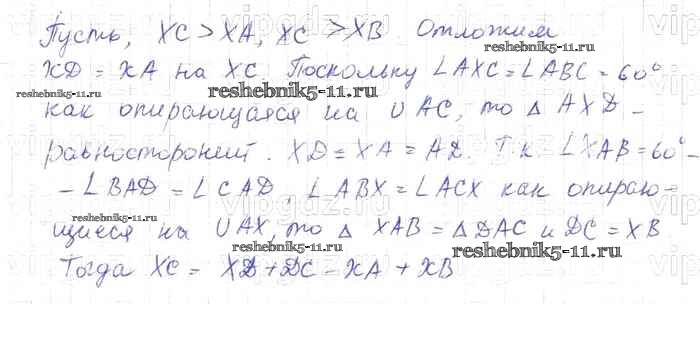 Пусть, XC > XA, XC > XB Отложим
XD = XA на XC. Поскольку ∠AXC = ∠ABC = 60°
как опирающаяся на ∪AC, то △ AXD -
равносторонний. XD = XA = AD. Т.к. ∠XAB = 60° -
- ∠BAD = ∠CAD, ∠ABX = ∠ACX как опираю-
щиеся на ∪AX, то △ XAB = △DAC и DC = XB
Тогда XC = XD + DC = XA + XB
reshebnik5-11.ru
reshebnik5-11.ru
reshebnik5-11.ru
reshebnik5-11.ru
reshebnik5-11.ru
vipgdz.ru